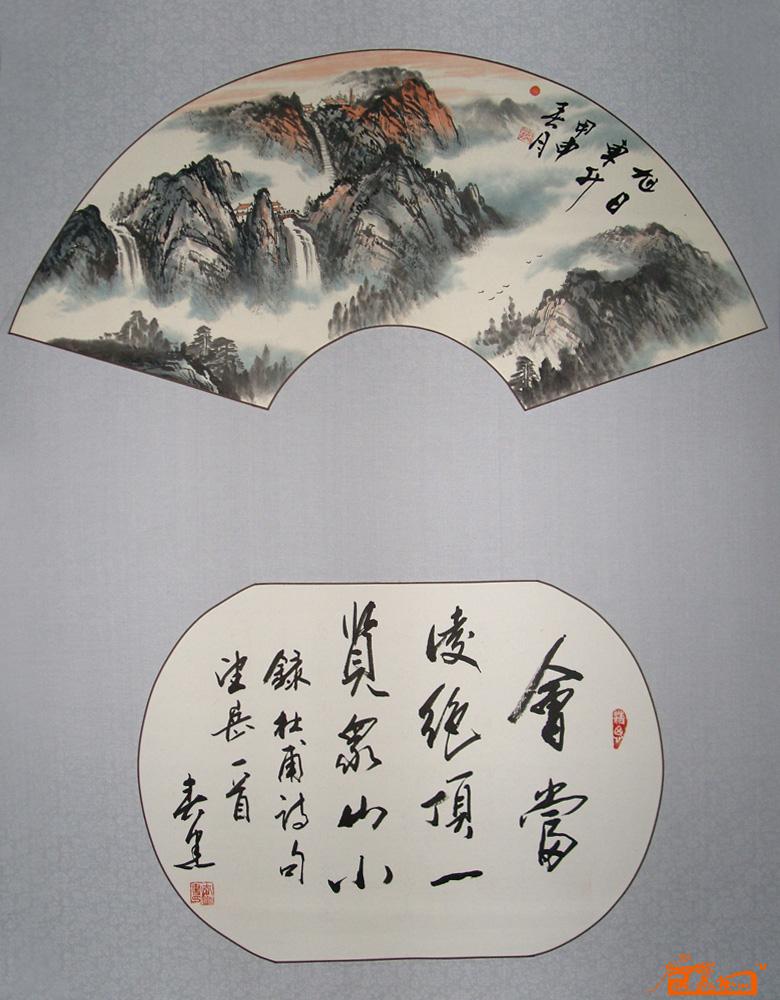 旭日
東升
甲申
春月
會當
凌絕頂一
覽眾山小
錄杜甫詩句
望岳一首